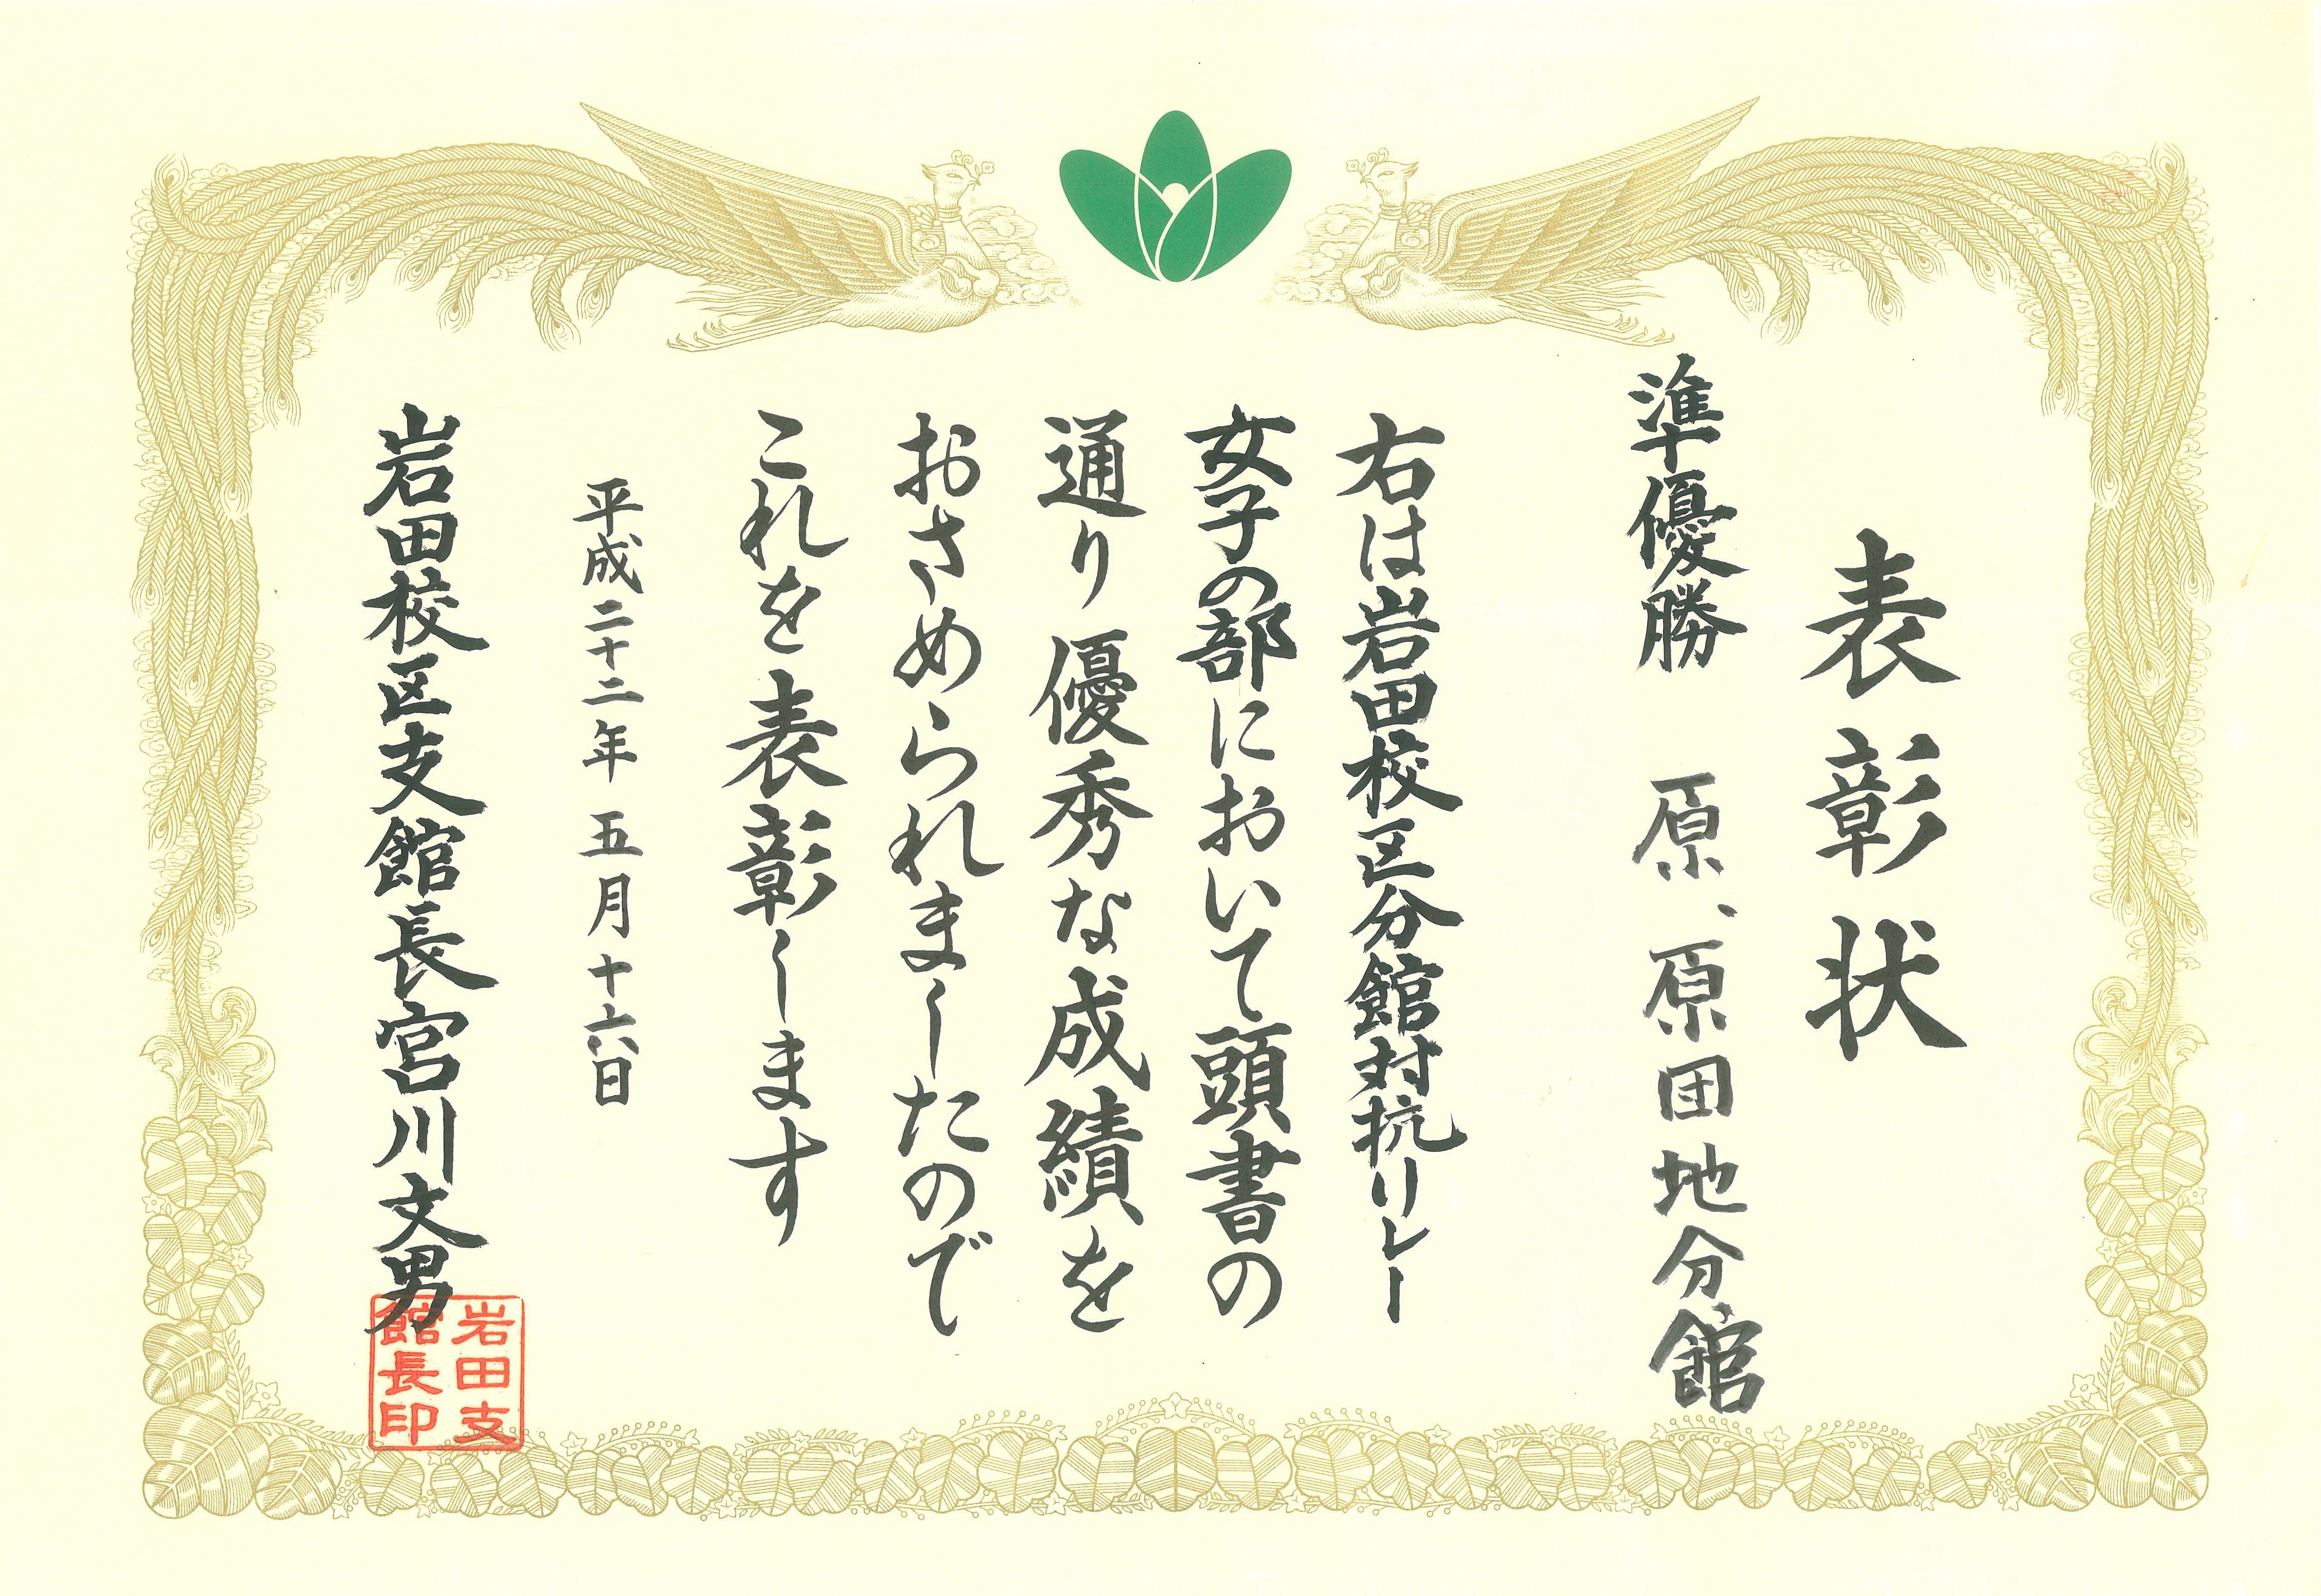 表彰状
準優勝　原、原団地分館
右は岩田校区分館対抗リレー
女子の部において頭書の
通り優秀な成績を
おさめられましたので
これを表彰します
平成二十二年五月十六日
岩田校区支館長宮川文男
岩田支
館長印